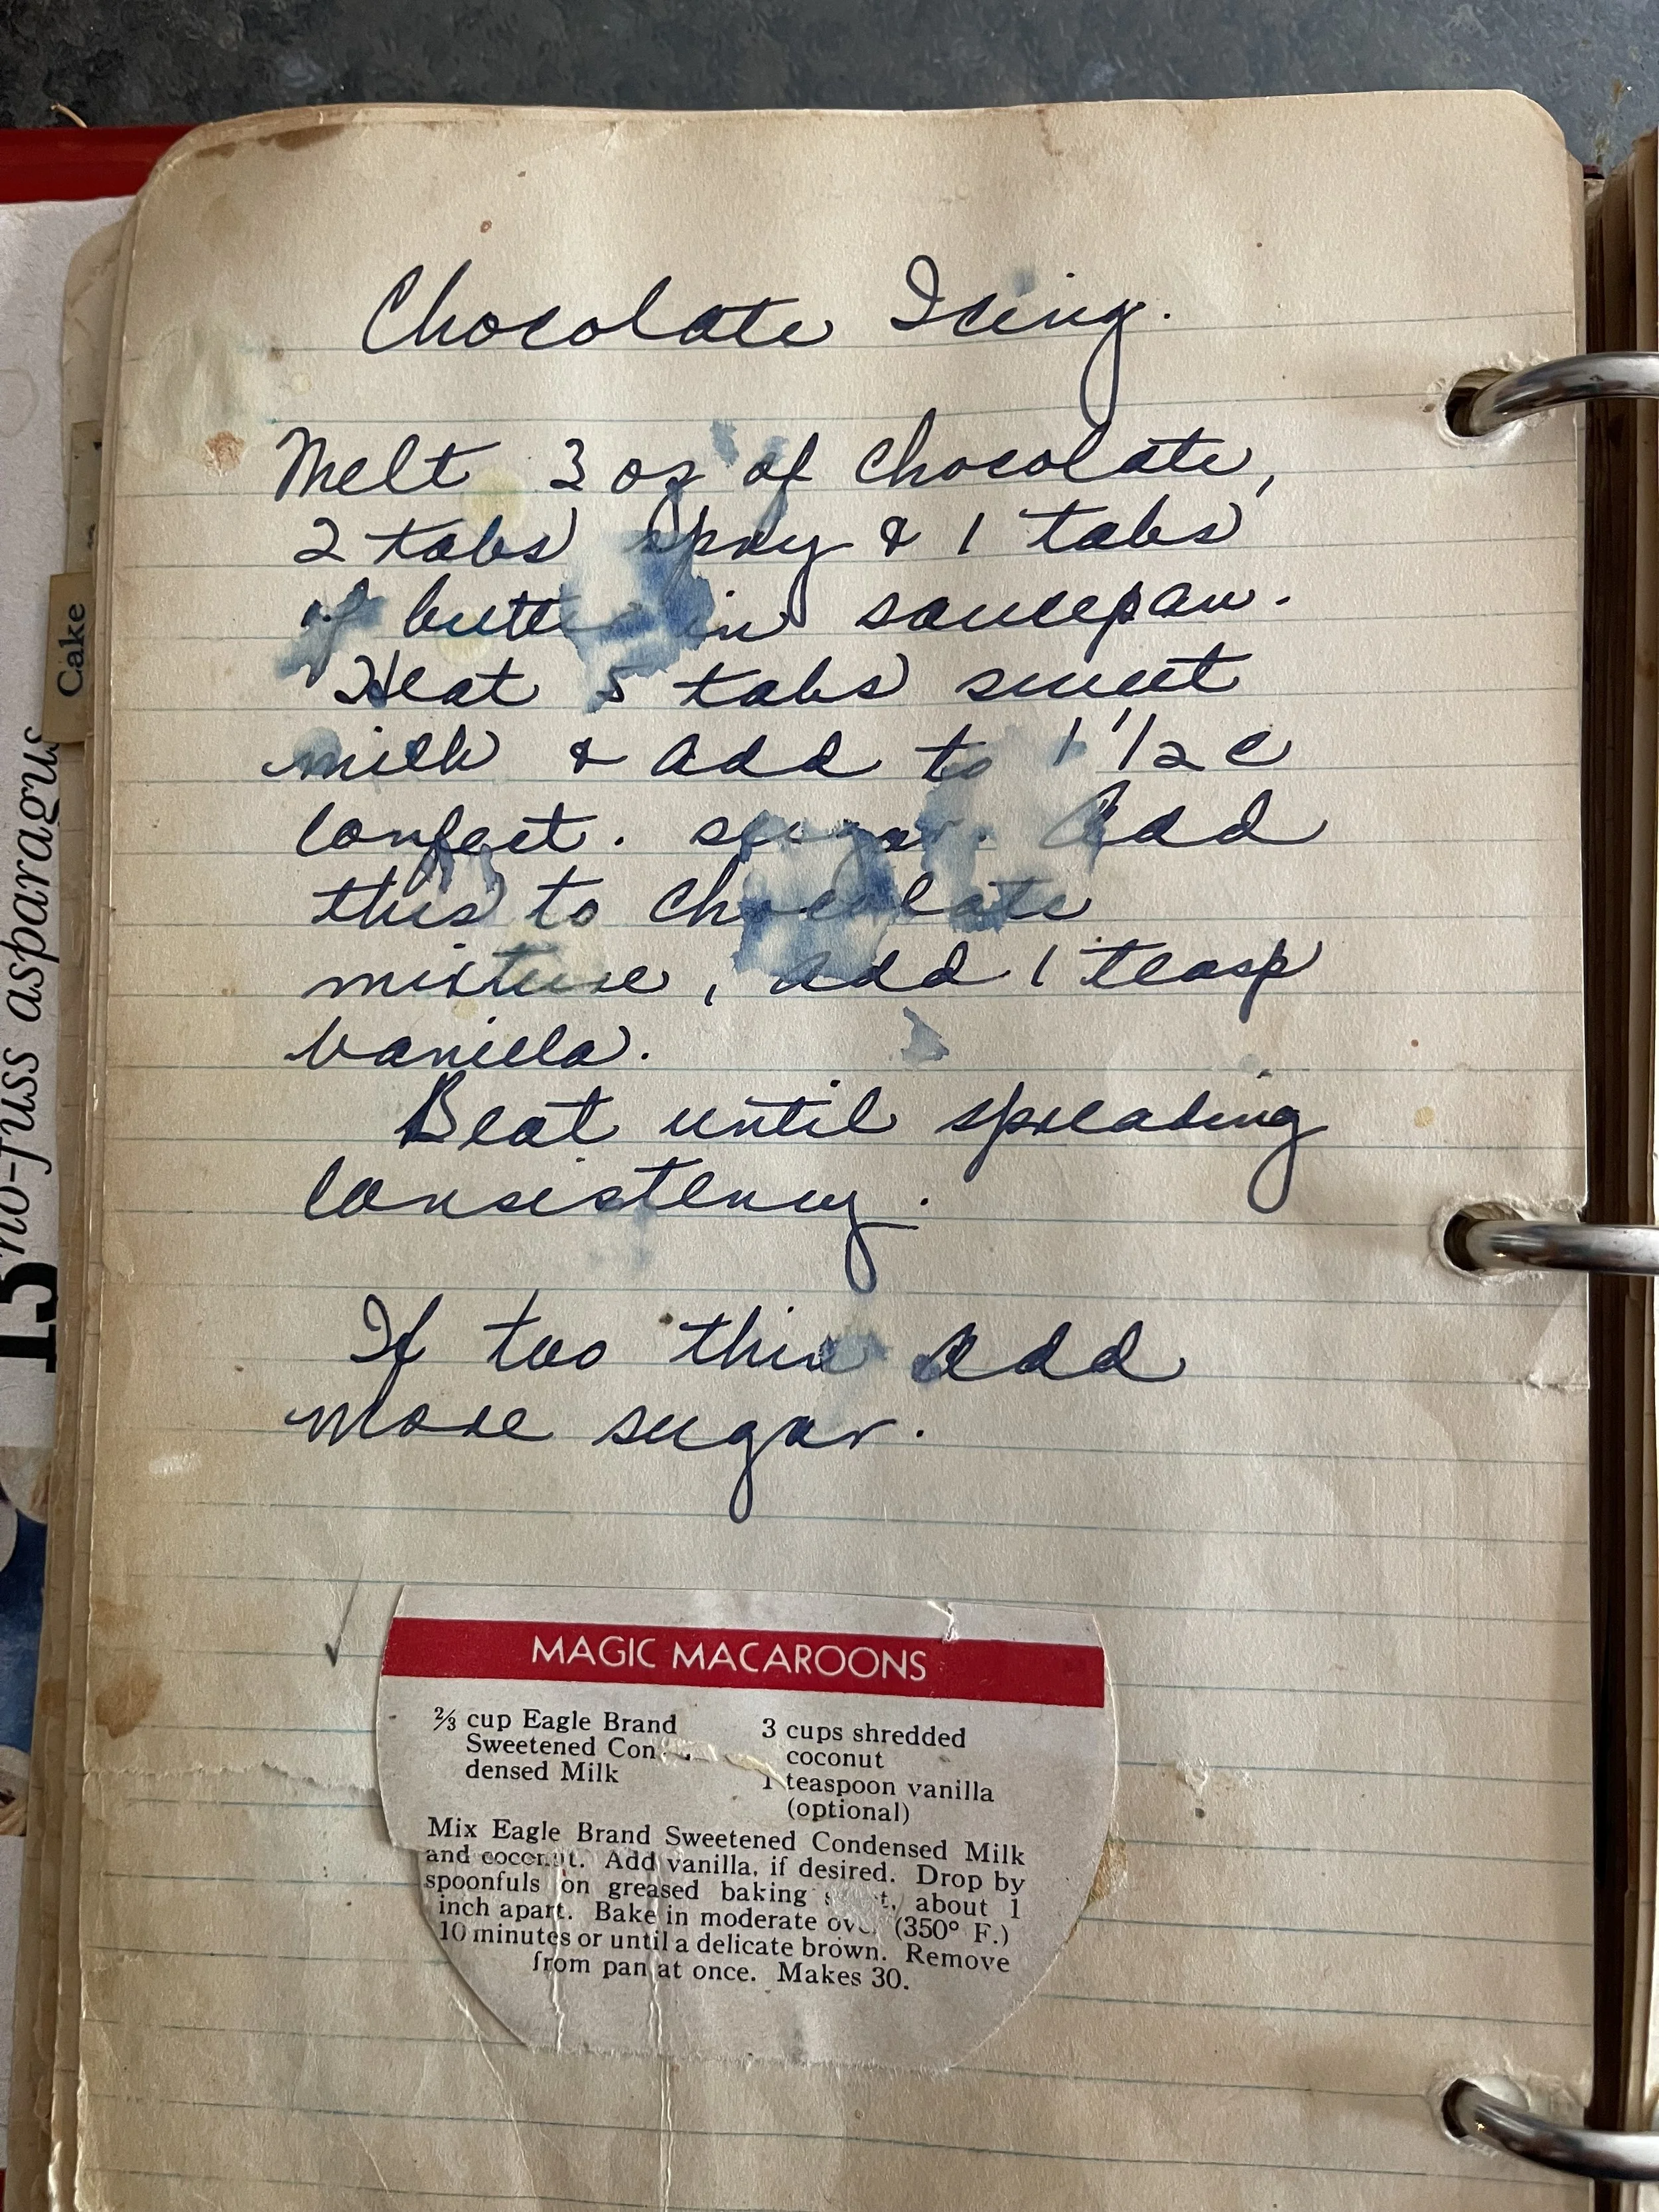 Chocolate Icing.
Melt 3 oz of chocolate,
2 tabs Spry & 1 tabs
of butter in saucepan.
Heat 5 tabs sweet
milk & add to 1 1/2 c
confect. sugar. Add
this to chocolate
mixture, add 1 teasp
vanilla.
Beat until spreading
consistency.
If too thin add
more sugar.
MAGIC MACAROONS
⅔ cup Eagle Brand
Sweetened Con-
densed Milk
3 cups shredded
coconut
1 teaspoon vanilla
(optional)
Mix Eagle Brand Sweetened Condensed Milk
and coconut. Add vanilla, if desired. Drop by
spoonfuls on greased baking about 1
inch apart. Bake in moderate oven (350° F.)
10 minutes or until a delicate brown. Remove
from pan at once. Makes 30.
Cake
15 no-fuss asparagus